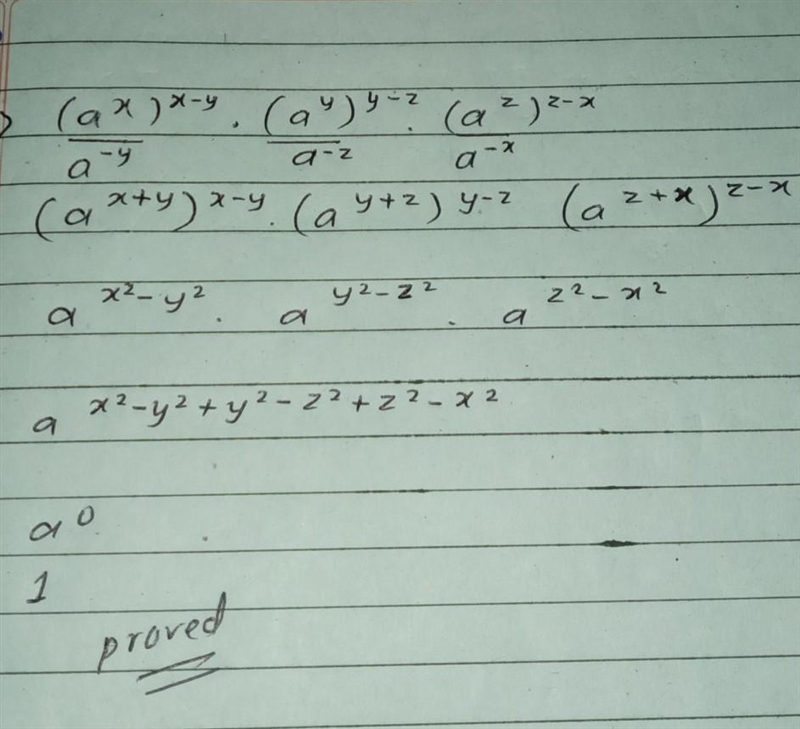 (a^x)^{x-y}/a^{-y} . (a^y)^{y-z}/a^{-z} . (a^z)^{z-x}/a^{-x}
(a^{x+y})^{x-y} . (a^{y+z})^{y-z} (a^{z+x})^{z-x}
a^{x²-y²} . a^{y²-z²} . a^{z²-x²}
a^{x²-y²+y²-z²+z²-x²}
a^0
1
proved